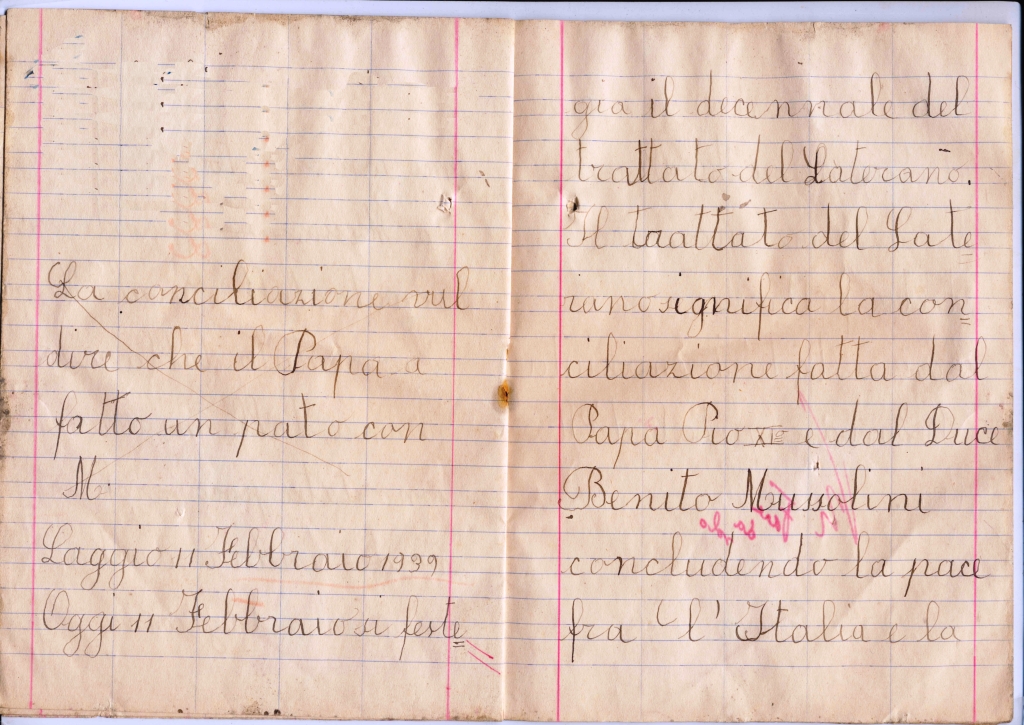 La conciliazione vul
dire che il Papa a
fatto un pato con
M.
Laggio 11 Febbraio 1939
Oggi 11 Febbraio si feste=
gia il decennale del
trattato del Laterano.
Il trattato del Late=
rano significa la con=
ciliazione fatta dal
Papa Pio XI e dal Duce
Benito Mussolini
concludendo la pace
fra l'Italia e la